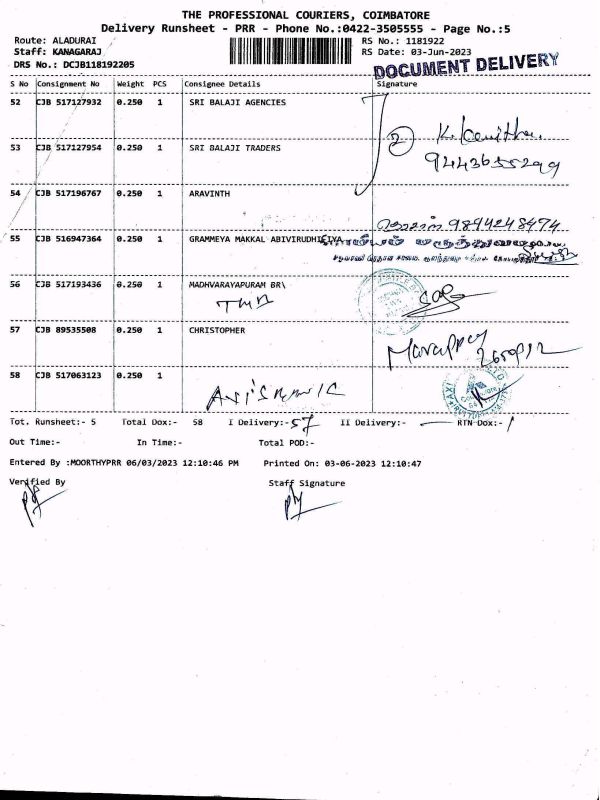 THE PROFESSIONAL COURIERS, COIMBATORE
Delivery Runsheet - PRR - Phone No.:0422-3505555 - Page No.:5
Route: ALADURAI RS No.: 1181922
Staff: KANAGARAJ RS Date: 03-Jun-2023
DRS No.: DCJB118192205 DOCUMENT DELIVERY
S No Consignment No Weight PCS Consignee Details Signature
52 CJB 517127932 0.250 1 SRI BALAJI AGENCIES
2 K. Kavitha
53 CJB 517127954 0.250 1 SRI BALAJI TRADERS 9443655299
54 CJB 517196767 0.250 1 ARAVINTH
9894248474
55 CJB 516947364 0.250 1 GRAMMEYA MAKKAL ABIVIRUDHI
56 CJB 517193436 0.250 1 MADHVARAYAPURAM BR\
TMB
57 CJB 89535508 0.250 1 CHRISTOPHER
58 CJB 517063123 0.250 1
Tot. Runsheet:- 5 Total Dox:- 58 I Delivery:- 57 II Delivery:- RTN Dox:- 1
Out Time:- In Time:- Total POD:-
Entered By :MOORTHYPRR 06/03/2023 12:10:46 PM Printed On: 03-06-2023 12:10:47
Verified By Staff Signature